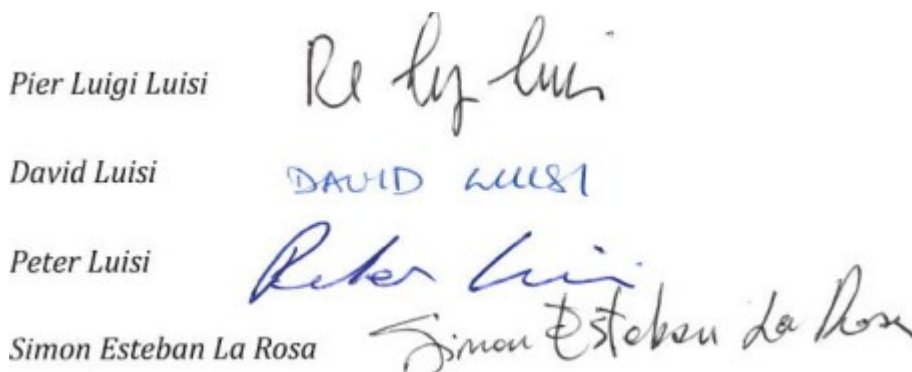 Pier Luigi Luisi
David Luisi DAVID LUISI
Peter Luisi Peter Luisi
Simon Esteban La Rosa Simon Esteban La Rosa